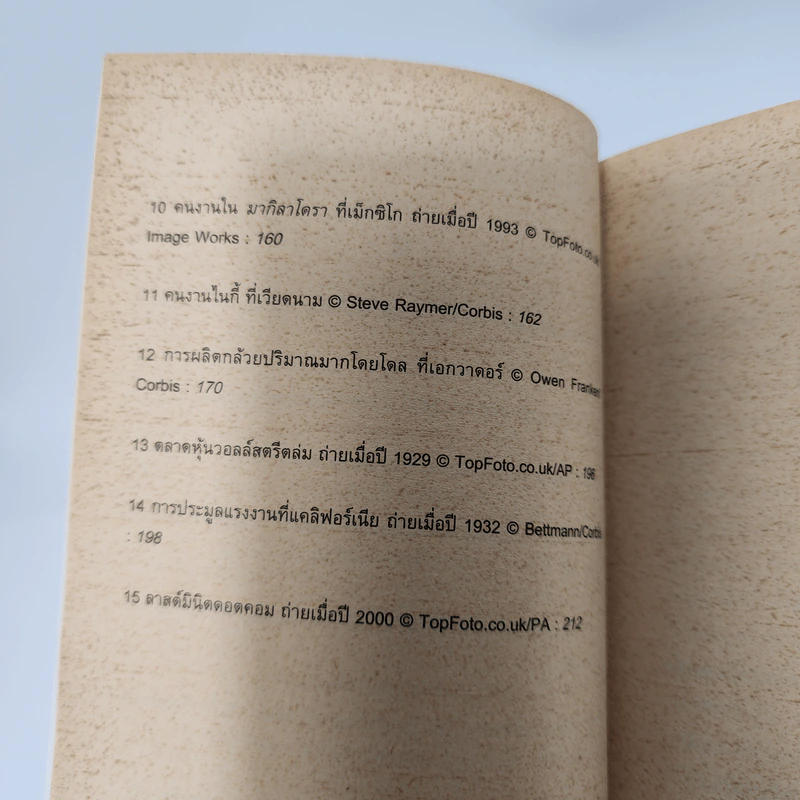 10 คนงานใน มากิลาโดรา ที่เม็กซิโก ถ่ายเมื่อปี 1993 © TopFoto.co.uk
Image Works : 160
11 คนงานไนกี้ ที่เวียดนาม © Steve Raymer/Corbis : 162
12 การผลิตกล้วยปริมาณมากโดยโดล ที่เอกวาดอร์ © Owen Franken
Corbis : 170
13 ตลาดหุ้นวอลล์สตรีตล่ม ถ่ายเมื่อปี 1929 © TopFoto.co.uk/AP : 196
14 การประมูลแรงงานที่แคลิฟอร์เนีย ถ่ายเมื่อปี 1932 © Bettmann/Corbis
: 198
15 ลาสต์มินิตดอตคอม ถ่ายเมื่อปี 2000 © TopFoto.co.uk/PA : 212